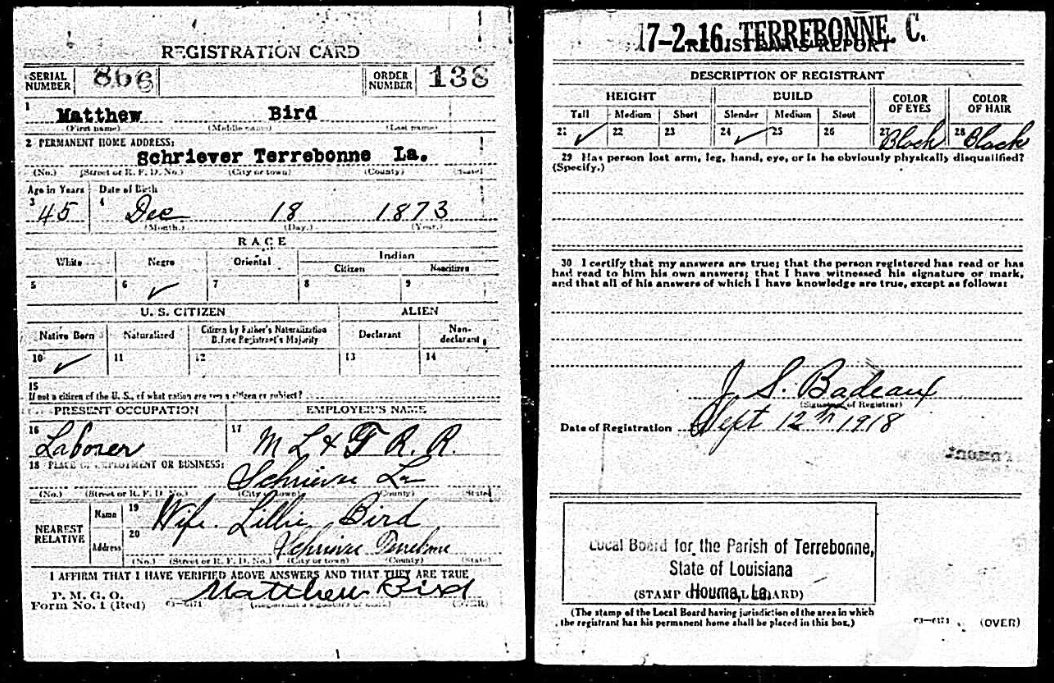 REGISTRATION CARD
SERIAL NUMBER 866 ORDER NUMBER 138
1 Matthew Bird
(First name) (Middle name) (Last name)
2 PERMANENT HOME ADDRESS:
Schriever Terrebonne La.
(No.) (Street or R. F. D. No.) (City or town) (County) (State)
Age in Years Date of Birth
3 45 4 Dec 18 1873
(Month.) (Day.) (Year.)
RACE
White Negro Oriental Indian
Citizen Noncitizen
5 6 ✓ 7 8 9
U. S. CITIZEN ALIEN
Native Born Naturalized Citizen by Father's Naturalization Before Registrant's Majority Declarant Non-declarant
10 ✓ 11 12 13 14
15
If not a citizen of the U. S., of what nation are you a citizen or subject?
PRESENT OCCUPATION EMPLOYER'S NAME
16 Laborer 17 M L & T R. R.
18 PLACE OF EMPLOYMENT OR BUSINESS:
Schriever La
(No.) (Street or R. F. D. No.) (City or town) (County) (State)
NEAREST RELATIVE Name 19 Wife. Lillie Bird
Address 20 Schriever Terrebonne
(No.) (Street or R. F. D. No.) (City or town) (County) (State)
I AFFIRM THAT I HAVE VERIFIED ABOVE ANSWERS AND THAT THEY ARE TRUE
P. M. G. O.
Form No. 1 (Red) 03—6171 Matthew Bird
(Registrant's signature or mark) (OVER)
17-2-16 TERREBONNE. C.
REGISTRAR'S REPORT
DESCRIPTION OF REGISTRANT
HEIGHT BUILD COLOR OF EYES COLOR OF HAIR
Tall Medium Short Slender Medium Stout
21 ✓ 22 23 24 ✓ 25 26 27 Black 28 Black
29 Has person lost arm, leg, hand, eye, or is he obviously physically disqualified?
(Specify.)
30 I certify that my answers are true; that the person registered has read or has
had read to him his own answers; that I have witnessed his signature or mark,
and that all of his answers of which I have knowledge are true, except as follows:
J. S. Badeaux
(Signature of Registrar)
Date of Registration Sept 12th 1918
Local Board for the Parish of Terrebonne,
State of Louisiana
Houma, La.
(STAMP OF LOCAL BOARD)
(The stamp of the Local Board having jurisdiction of the area in which
the registrant has his permanent home shall be placed in this box.)
03—6171 (OVER)